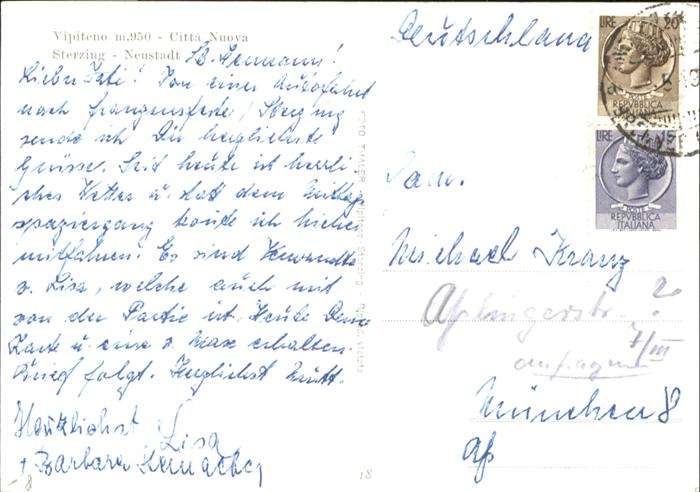 Vipiteno m. 950 - Città Nuova
Sterzing - Neustadt
Lieber Vati! Von einer Autofahrt
nach Franzensfeste / Sterzing
sende ich Dir herzlichste
Grüsse. Seit heute ist herrli-
ches Wetter u. statt dem Mittag
spaziergang konnte ich hieher
mitfahren. Es sind Verwandte
v. Lisa, welche auch mit
von der Partie ist. Heute Deine
Karte u. eine v. erhalten.
Brief folgt. Herzlichst Mutti.
Herzlichst Lisa
+ Barbara
Deutschland
LIRE 20
REPVBBLICA
ITALIANA
LIRE 15
REPVBBLICA
ITALIANA
Michael Kranz
?
7/III
München 8
18